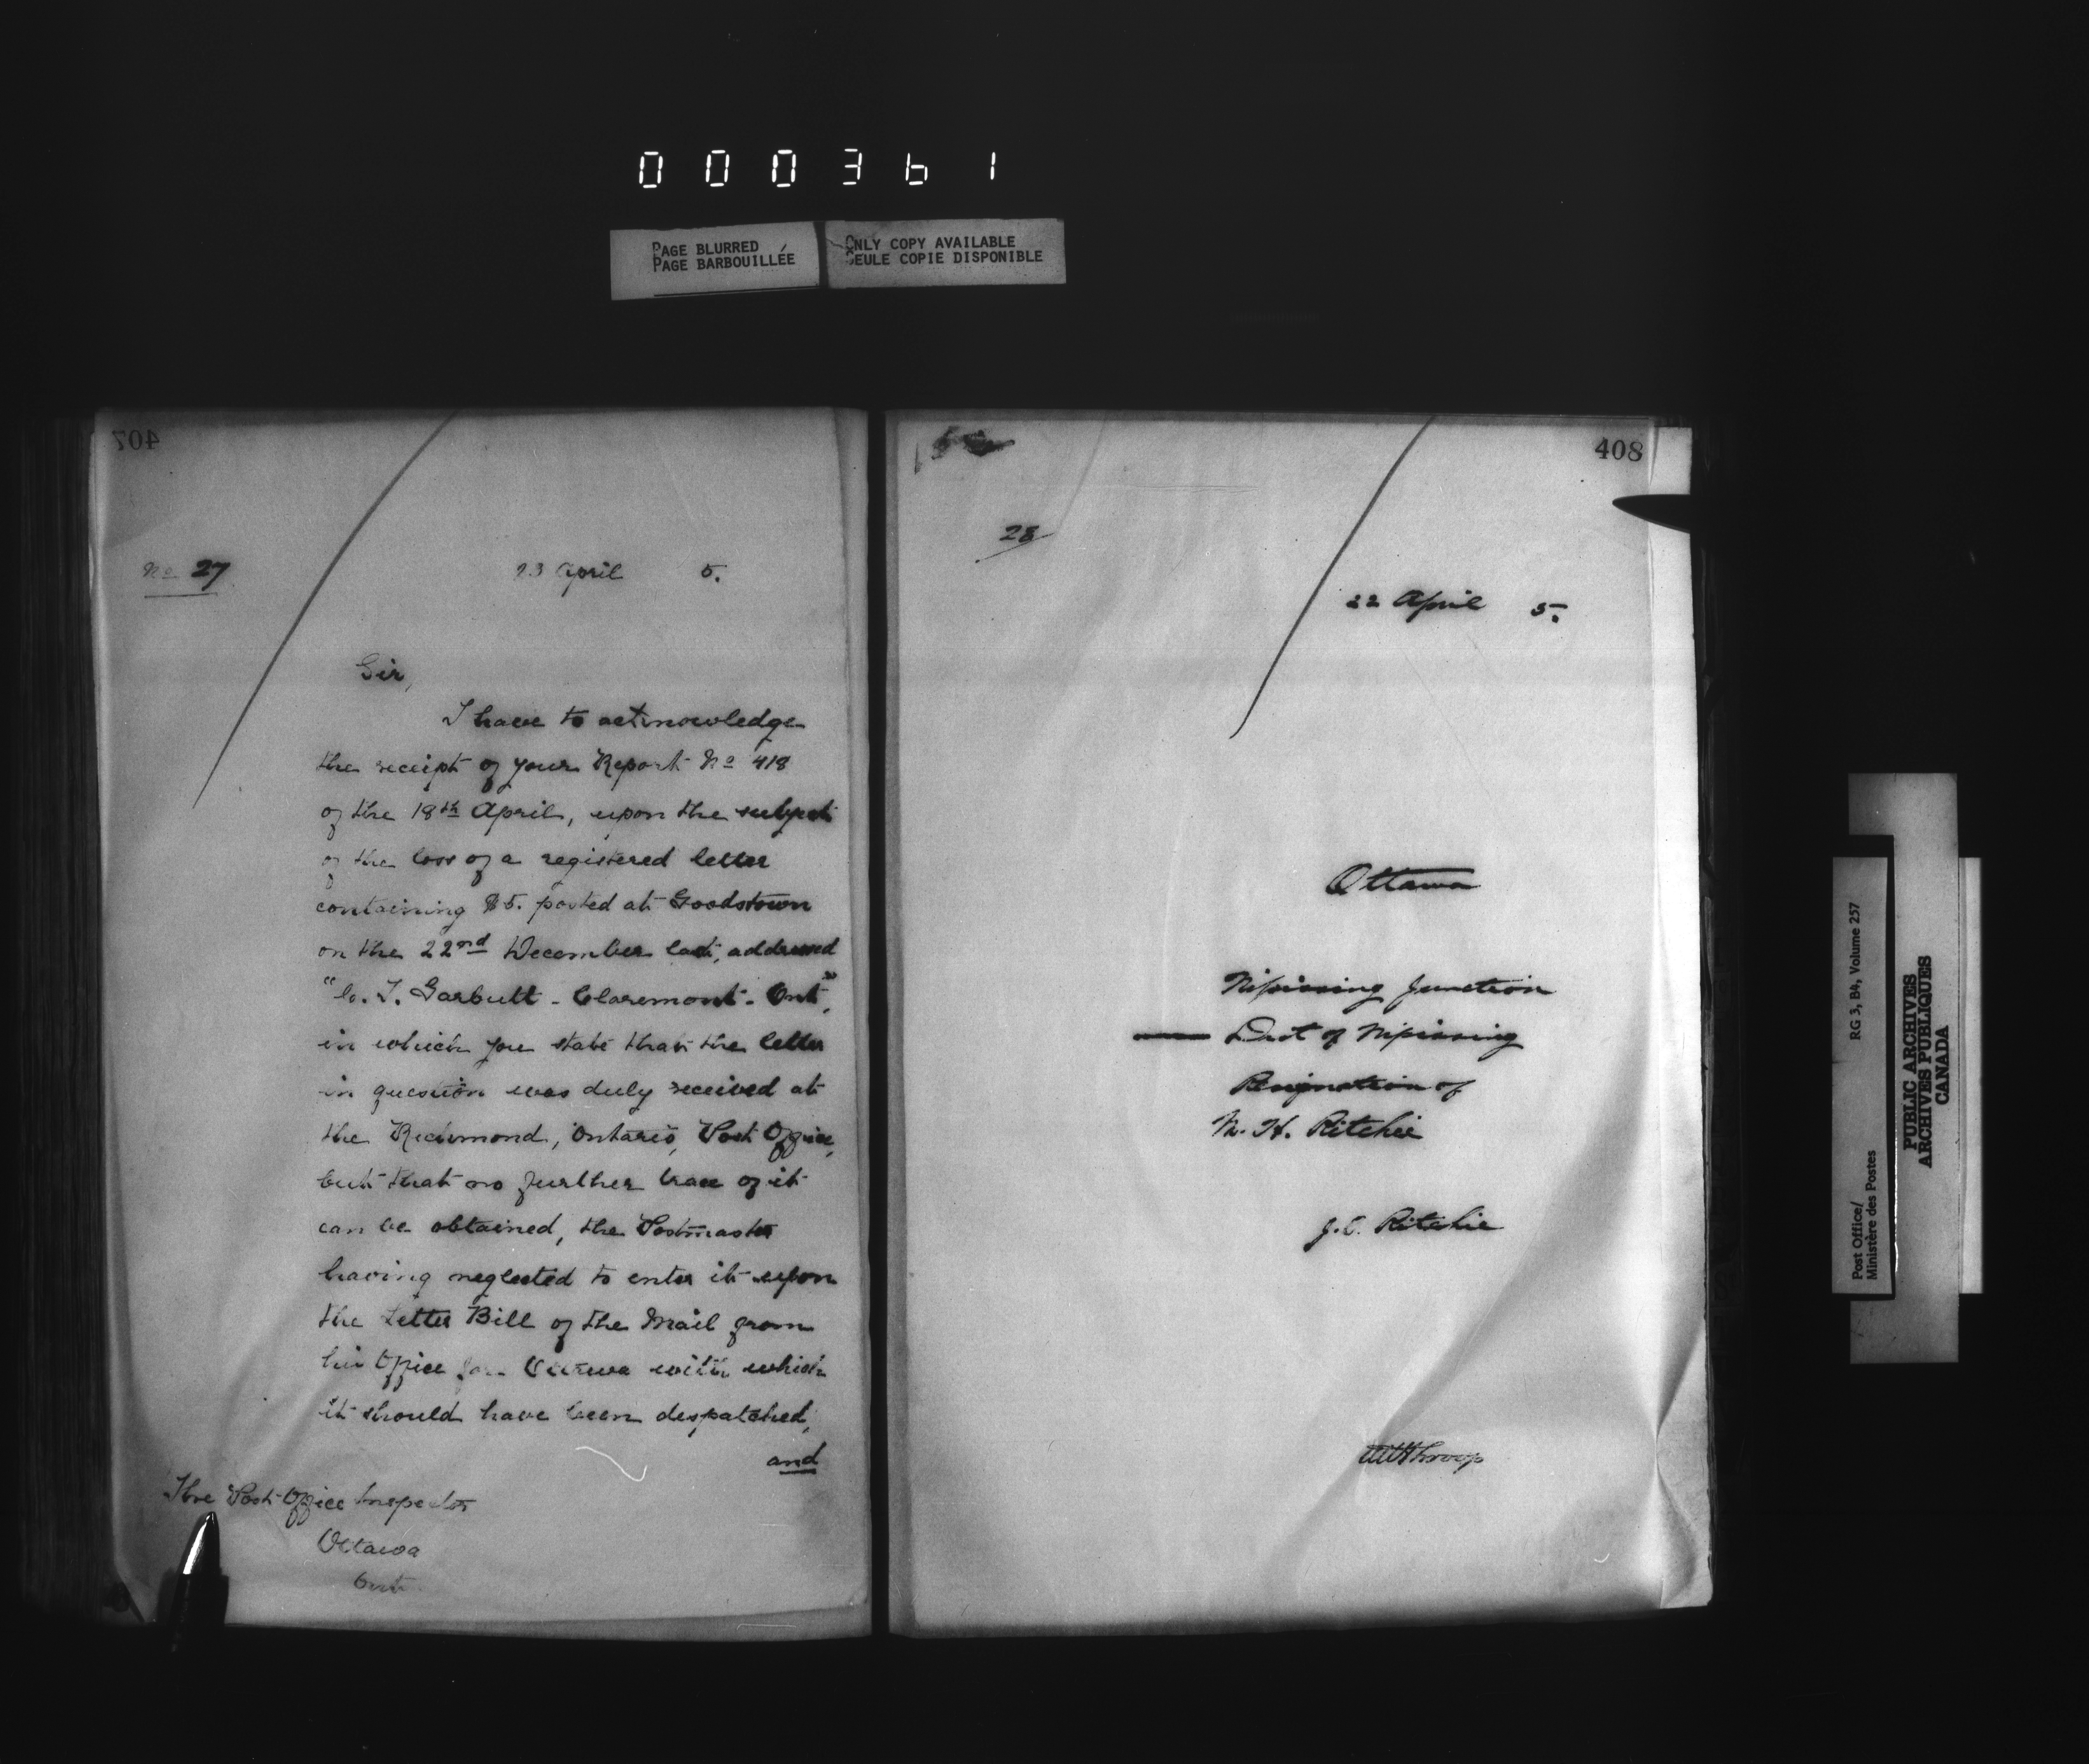 000361
PAGE BLURRED
PAGE BARBOUILLÉE
ONLY COPY AVAILABLE
SEULE COPIE DISPONIBLE
407
No 27
23 April 5.
Sir,
I have to acknowledge
the receipt of your Report No 418
of the 18th April, upon the subject
of the loss of a registered letter
containing $5. posted at Goodstown
on the 22nd December last, addressed
"C. T. Garbutt - Claremont - Ont",
in which you state that the letter
in question was duly received at
the Richmond, Ontario, Post Office,
but that no further trace of it
can be obtained, the Postmaster
having neglected to enter it upon
the Letter Bill of the Mail from
his Office for Ottawa with which
it should have been despatched,
and
The Post Office Inspector
Ottawa
Ont
408
28
22 April 5.
Ottawa
Nipissing Junction
Dist of Nipissing
Resignation of
N. H. Ritchie
J. C. Ritchie
Throop
Post Office/
Ministère des Postes
RG 3, B4, Volume 257
PUBLIC ARCHIVES
ARCHIVES PUBLIQUES
CANADA